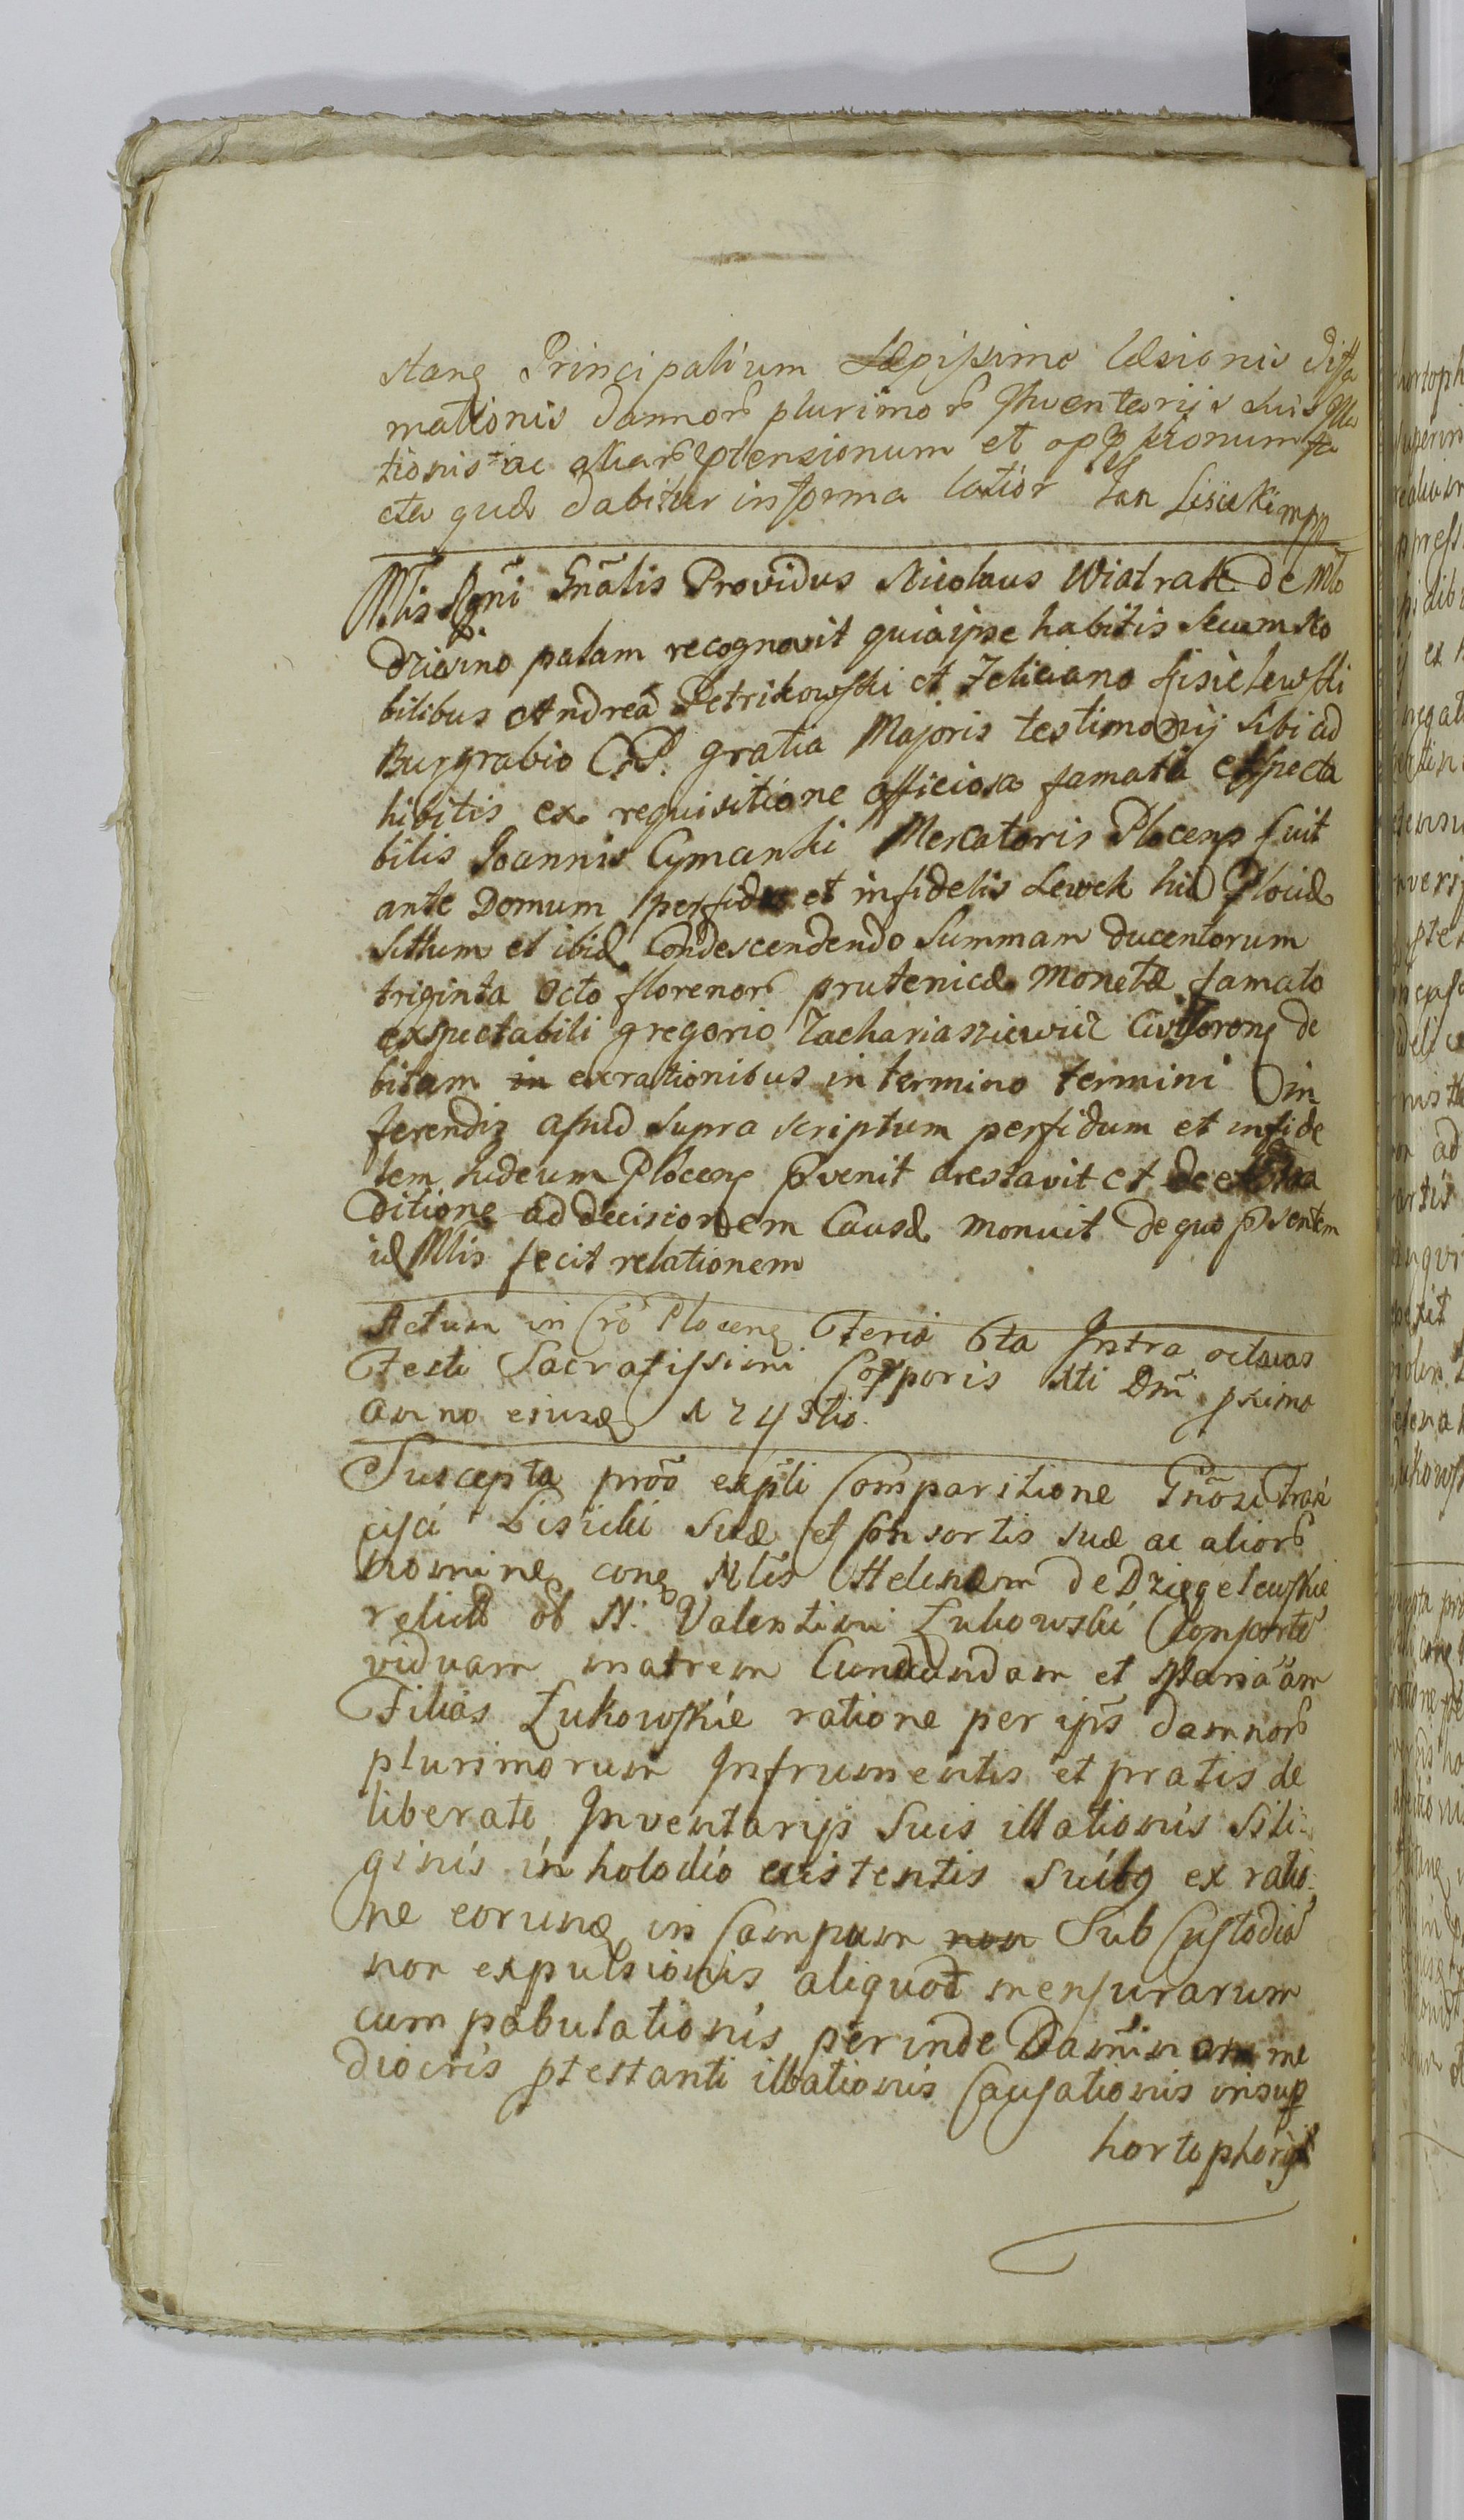 stane Principalium Sæpissime læsionis diffa
mationis damnorũ plurimorũ Inventariis suis Illa
tionis ac aliarũ ptensionum et oppressionum fa
cta quæ dabitur in forma latiori Jan Lisicki mpp
Mlis Rgni Gnãlis Providus Nicolaus Wiatrak de Mło
dziaino palam recognovit quia ipse habitis secum No
bilibus Andrea Petrikowski et Feliciano Kisielewski
Burgrabio C.P. gratia Majoris testimonij sibi ad
hibitis ex requisitione officiosa famati et specta
bilis Joannis Cymanski Mercatoris Plocens fuit
ante Domum perfidi et infidelis Lewek hic Plociæ
sittum et ibid Condescendendo summam ducentorum
triginta octo florenorũ prutenicæ monetæ famato
expectabili gregorio Zachariaszewicz Civi Torone de
bitam in ex rationibus in termino termini in
ferendis apud supra scriptum perfidum et infide
lem Judeum Plocens pvenit arestavit et de
ditione ad decisionem Causæ monuit de quo pñsentem
id Mlis fecit relationem
Actum in Cro Plocens Feria 6ta Intra octavas
Festi Sacratissimi Corporis Xti Dni primo
anno eiusd 1743tio.
Suscepta pròò expli Comparitione Gnõsi Fran
cisci Lisicki suæ et Consortis suæ ac aliorũ
nomine cone Mlis Helenam de Dziegelewskie
relict ol N. Valentini Łukowski Consorte
viduam matrem Cunedundam et Mariaãm
Filias Łukowskie ratione per ips damnorũ
plurimorum In frumentis et pratis de
liberate Inventarijs suis illationis Sili
ginis in holodio existentis suisq ex ratio
ne eorund in Campum non Sub Custodia
non expulsionis aliquod mensurarum
cum pabulationis perinde Damni me
diocris ptestanti illationis Causationis insup
hortophorijs